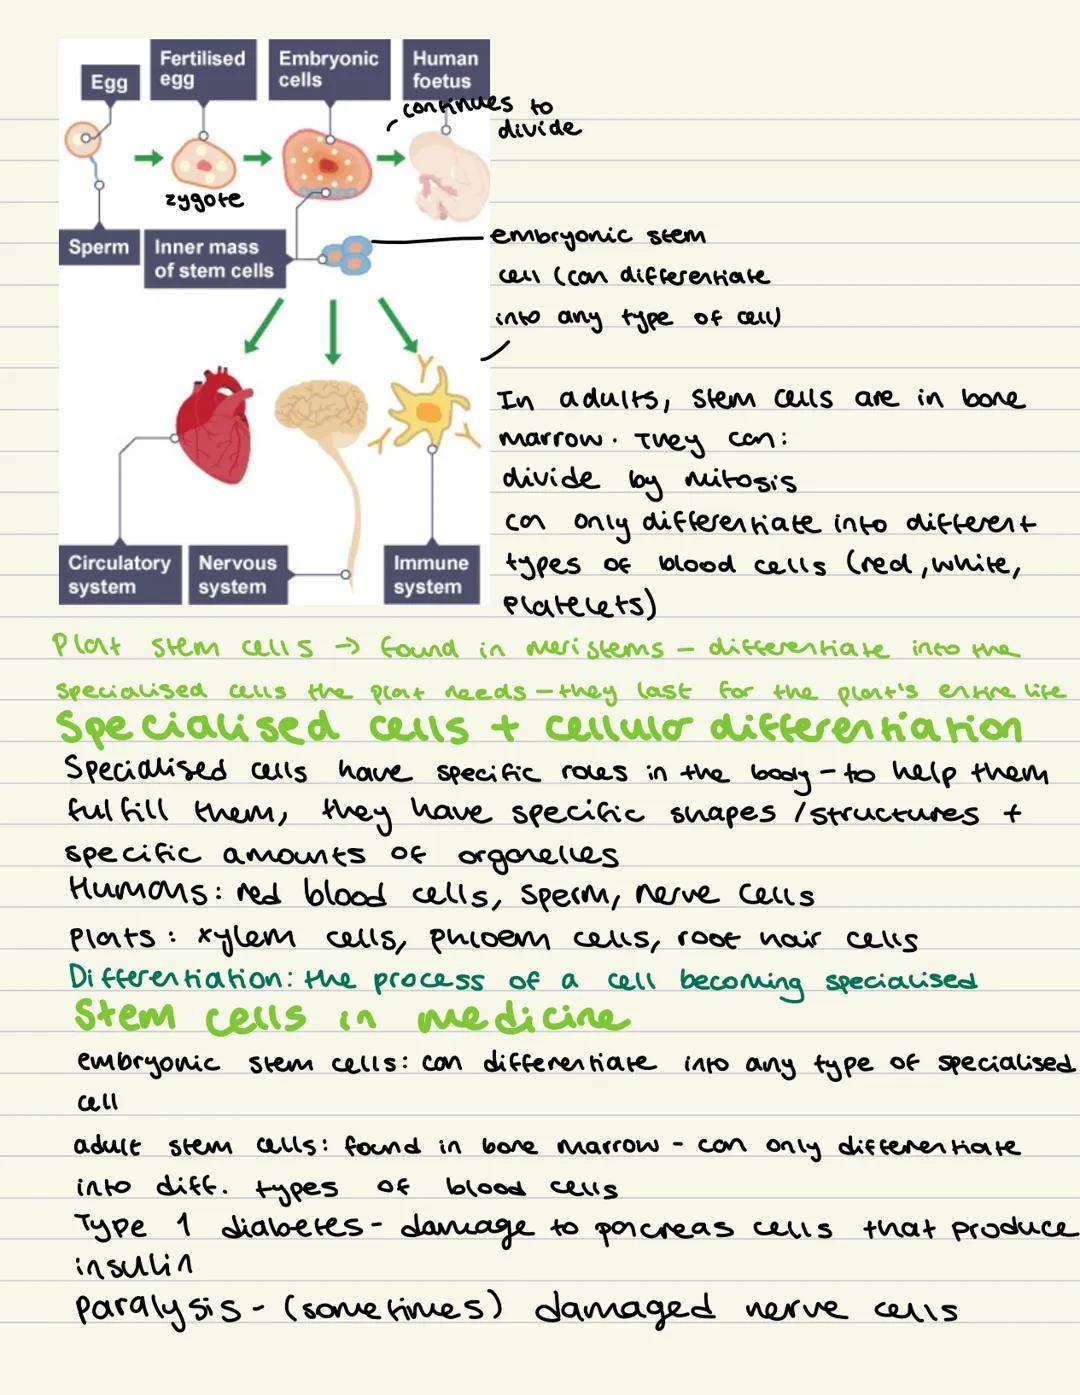 Egg
Fertilised
egg
Embryonic
cells
Human
foetus
continues to
divide
zygote
Sperm
Inner mass
of stem cells
embryonic stem
cell (can differentiate
into any type of cell)
In adults, stem cells are in bone
marrow. They can:
divide by mitosis
can only differentiate into different
types of blood cells (red, white,
platelets)
Circulatory
system
Nervous
system
Immune
system
Plant stem cells → found in meristems - differentiate into the
specialised cells the plant needs - they last for the plant's entire life
Specialised cells + cellular differentiation
Specialised cells have specific roles in the body - to help them
fulfill them, they have specific shapes / structures +
specific amounts of organelles
Humans: red blood cells, sperm, nerve cells
Plants: xylem cells, phloem cells, root hair cells
Differentiation: the process of a cell becoming specialised
Stem cells in medicine
embryonic stem cells: can differentiate into any type of specialised
cell
adult stem cells: found in bone marrow - can only differentiate
into diff. types of blood cells
Type 1 diabetes - damage to pancreas cells that produce
insulin
paralysis - (sometimes) damaged nerve cells